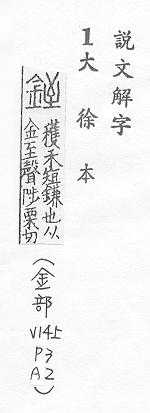 説文解字
1大徐本
銍 穫禾短鎌也从
金至聲陟栗切
(金部
V14上
P3
A2)